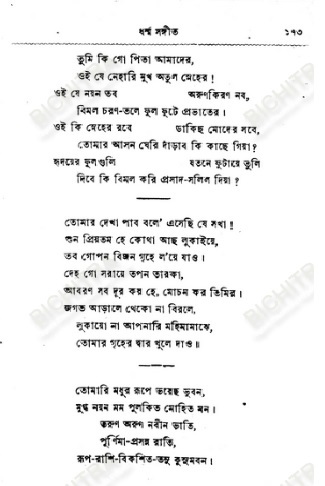 ধর্ম্ম সঙ্গীত ১৭৩
তুমি কি গো পিতা আমাদের,
ওই যে নেহারি মুখ অতুল স্নেহের!
ওই যে নয়ন তব অরুণকিরণ নব,
বিমল চরণ-তলে ফুল ফুটে প্রভাতের।
ওই কি স্নেহের রবে ডাকিছ মোদের সবে,
তোমার আসন ঘেরি দাঁড়াব কি কাছে গিয়া?
হৃদয়ের ফুল গুলি যতনে ফুটায়ে তুলি
দিবে কি বিমল করি প্রসাদ-সলিল দিয়া?
তোমার দেখা পাব বলে' এসেছি যে সখা!
শুন প্রিয়তম হে কোথা আছ লুকাইয়ে,
তব গোপন বিজন গৃহে ল'য়ে যাও।
দেহ গো সরায়ে তপন তারকা,
আবরণ সব দূর কর হে, মোচন কর তিমির।
জগত আড়ালে থেকো না বিরলে,
লুকায়ো না আপনারি মহিমামাঝে,
তোমার গৃহের দ্বার খুলে দাও॥
তোমারি মধুর রূপে ভরেছ ভুবন,
মুগ্ধ নয়ন মম পুলকিত মোহিত মন।
তরুণ অরুণ নবীন ভাতি,
পূর্ণিমা-প্রসন্ন রাতি,
রূপ-রাশি-বিকশিত-তনু কুসুমবন।
BICHITRA